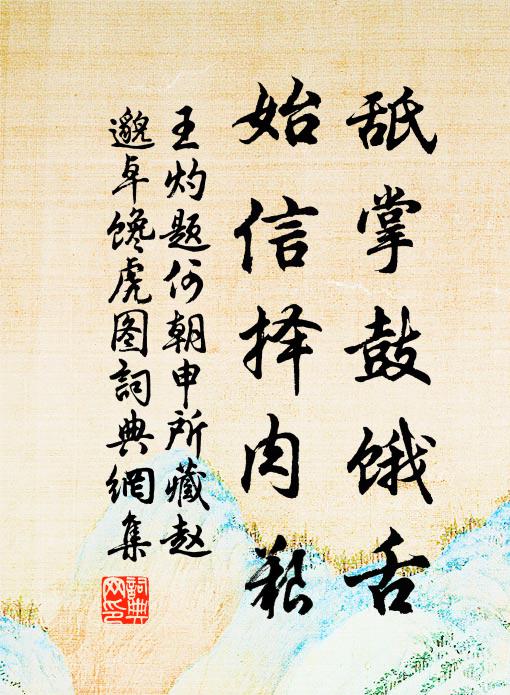 舐掌鼓饿舌
始信择肉艰
王灼题何朝申所藏赵
邈卓馋虎图詞典網集
詞典网印